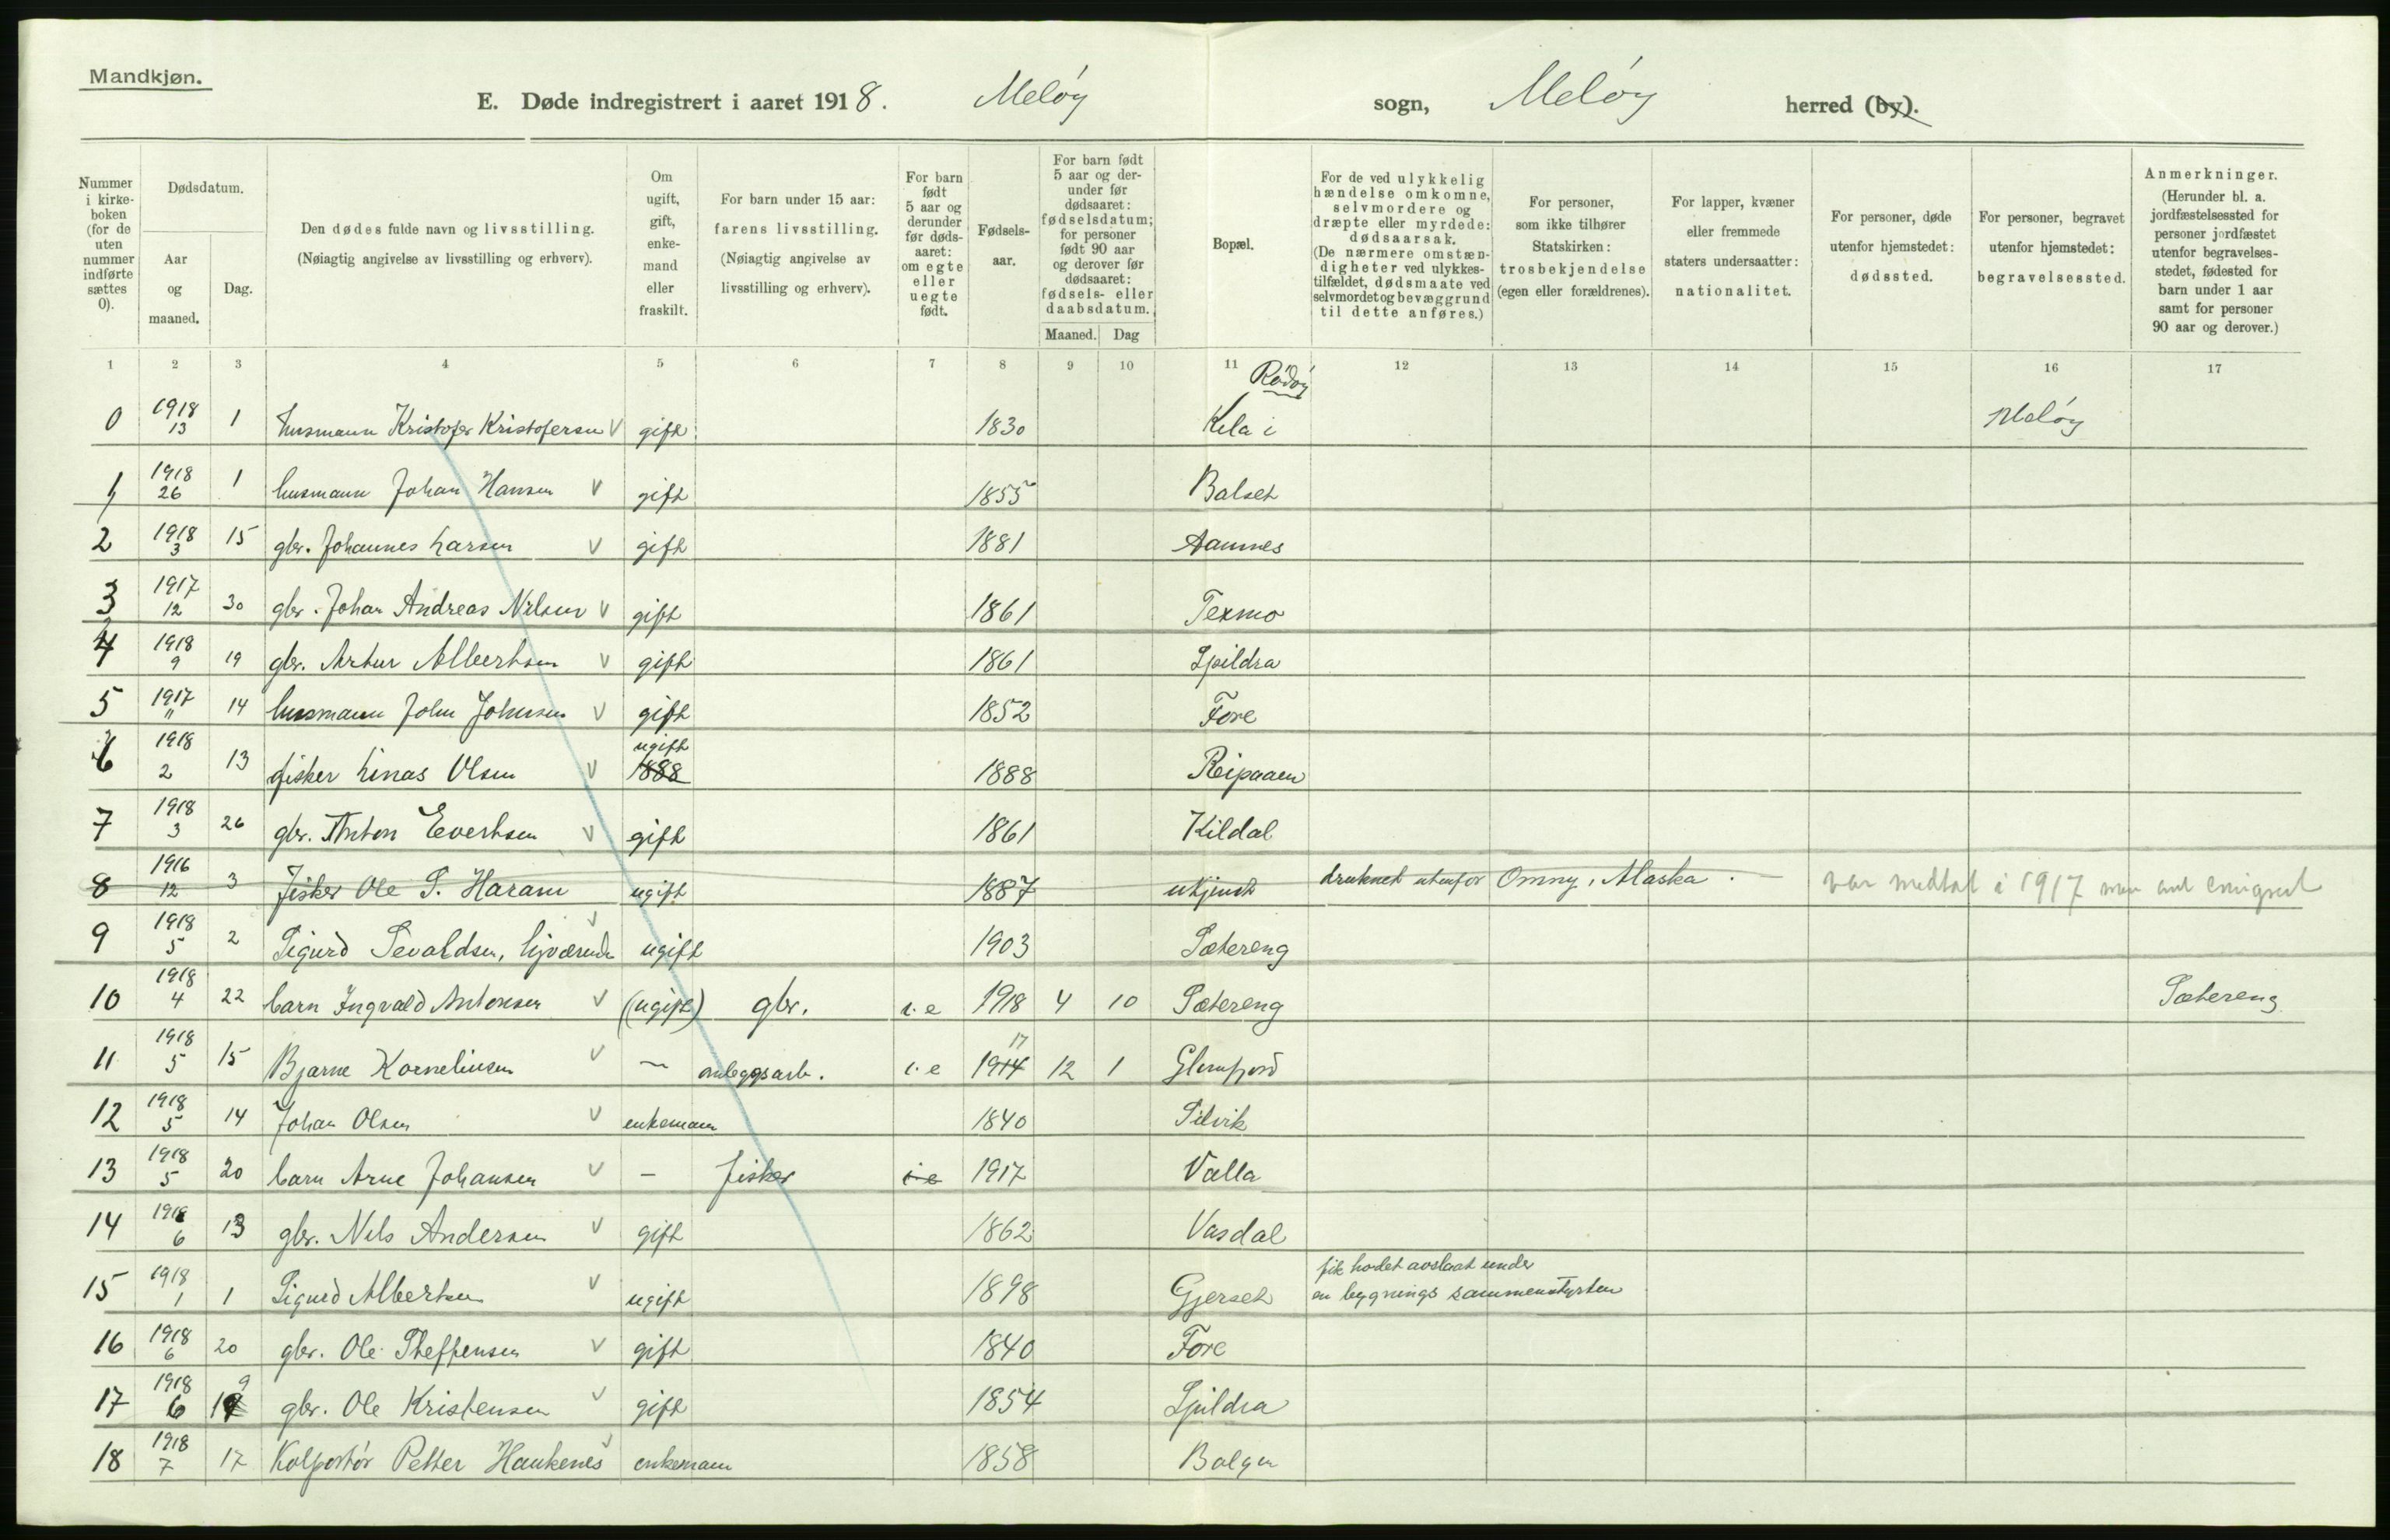 Mandkjøn.
E. Døde indregistrert i aaret 1918. Meløy sogn, Meløy herred (by).
Nummer i kirke-boken (for de uten nummer indførte sættes 0).
Dødsdatum.
Aar og maaned.
Dag.
Den dødes fulde navn og livsstilling.
(Nøiagtig angivelse av livsstilling og erhverv).
Om ugift, gift, enke-mand eller fraskilt.
For barn under 15 aar: farens livsstilling. (Nøiagtig angivelse av livsstilling og erhverv).
For barn født 5 aar og derunder før døds-aaret: om egte eller uegte født.
Fødsels-aar.
For barn født 5 aar og der-under før dødsaaret: fødselsdatum; for personer født 90 aar og derover før dødsaaret: fødsels- eller daabsdatum.
Maaned. Dag
Bopæl.
For de ved ulykkelig hændelse omkomne, selvmordere og dræpte eller myrdede: dødsaarsak. (De nærmere omstæn-digheter ved ulykkes-tilfældet, dødsmaate ved selvmordet og bevæggrund til dette anføres.)
For personer, som ikke tilhører Statskirken: trosbekjendelse (egen eller forældrenes).
For lapper, kvæner eller fremmede staters undersaatter: nationalitet.
For personer, døde utenfor hjemstedet: dødssted.
For personer, begravet utenfor hjemstedet: begravelsessted.
Anmerkninger. (Herunder bl. a. jordfæstelsessted for personer jordfæstet utenfor begravelses-stedet, fødested for barn under 1 aar samt for personer 90 aar og derover.)
1 2 3 4 5 6 7 8 9 10 11 12 13 14 15 16 17
0 1918 13 1 husmann Kristofer Kristofersen V gift 1830 Kila i Rødøy Meløy
1 1918 26 1 husmann Johan Hansen V gift 1855 Balset
2 1918 3 15 gbr. Johannes Larsen V gift 1881 Aamnes
3 1917 12 30 gbr. Johan Andreas Nilsen V gift 1861 Texmo
4 1918 9 19 gbr. Artur Albertsen V gift 1861 Spildra
5 1917 11 14 husmann John Johnsen V gift 1852 Fore
6 1918 2 13 fisker Linas Olsen V ugift 1888 1888 Reipaaen
7 1918 3 26 gbr. Anton Evertsen V gift 1861 Kildal
8 1916 12 3 Fisker Ole S. Haram ugift 1887 ukjendt druknet utenfor Omny, Alaska. var medtat i 1917 men
9 1918 5 2 Sigurd Sevaldsen, hjværende V ugift 1903 Sætereng
10 1918 4 22 barn Ingvald Antonsen V (ugift) gbr. i.e 1918 4 10 Sætereng Sætereng
11 1918 5 15 Bjarne Korneliusen V — anleggsarb. i.e 1914 17 12 1 Glomfjord
12 1918 5 14 Johan Olsen V enkemann 1840 Selvik
13 1918 5 20 barn Arne Johansen V — fisker i-e 1917 Valla
14 1918 6 13 gbr. Nils Andersen V gift 1862 Vasdal
15 1918 1 1 Sigurd Albertsen V ugift 1898 Gjerset fik hodet avslaat under
en bygnings sammenstyrten
16 1918 6 20 gbr. Ole Steffensen V gift 1840 Fore
17 1918 6 19 gbr. Ole Kristensen V gift 1854 Spildra
18 1918 7 17 Kolportör Petter Haukenes V enkemann 1858 Bolga